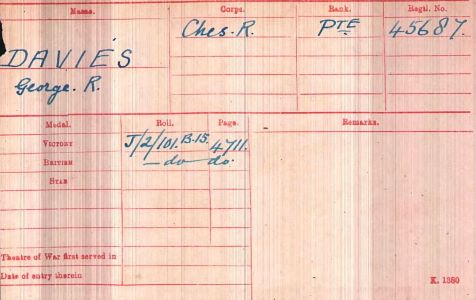 Name. Corps. Rank. Regtl. No.
DAVIES Ches. R. PTE 45687.
George. R.
Medal. Roll. Page. Remarks.
VICTORY J/2/101.B.15. 4711.
BRITISH — do — do.
STAR
Theatre of War first served in
Date of entry therein K. 1380